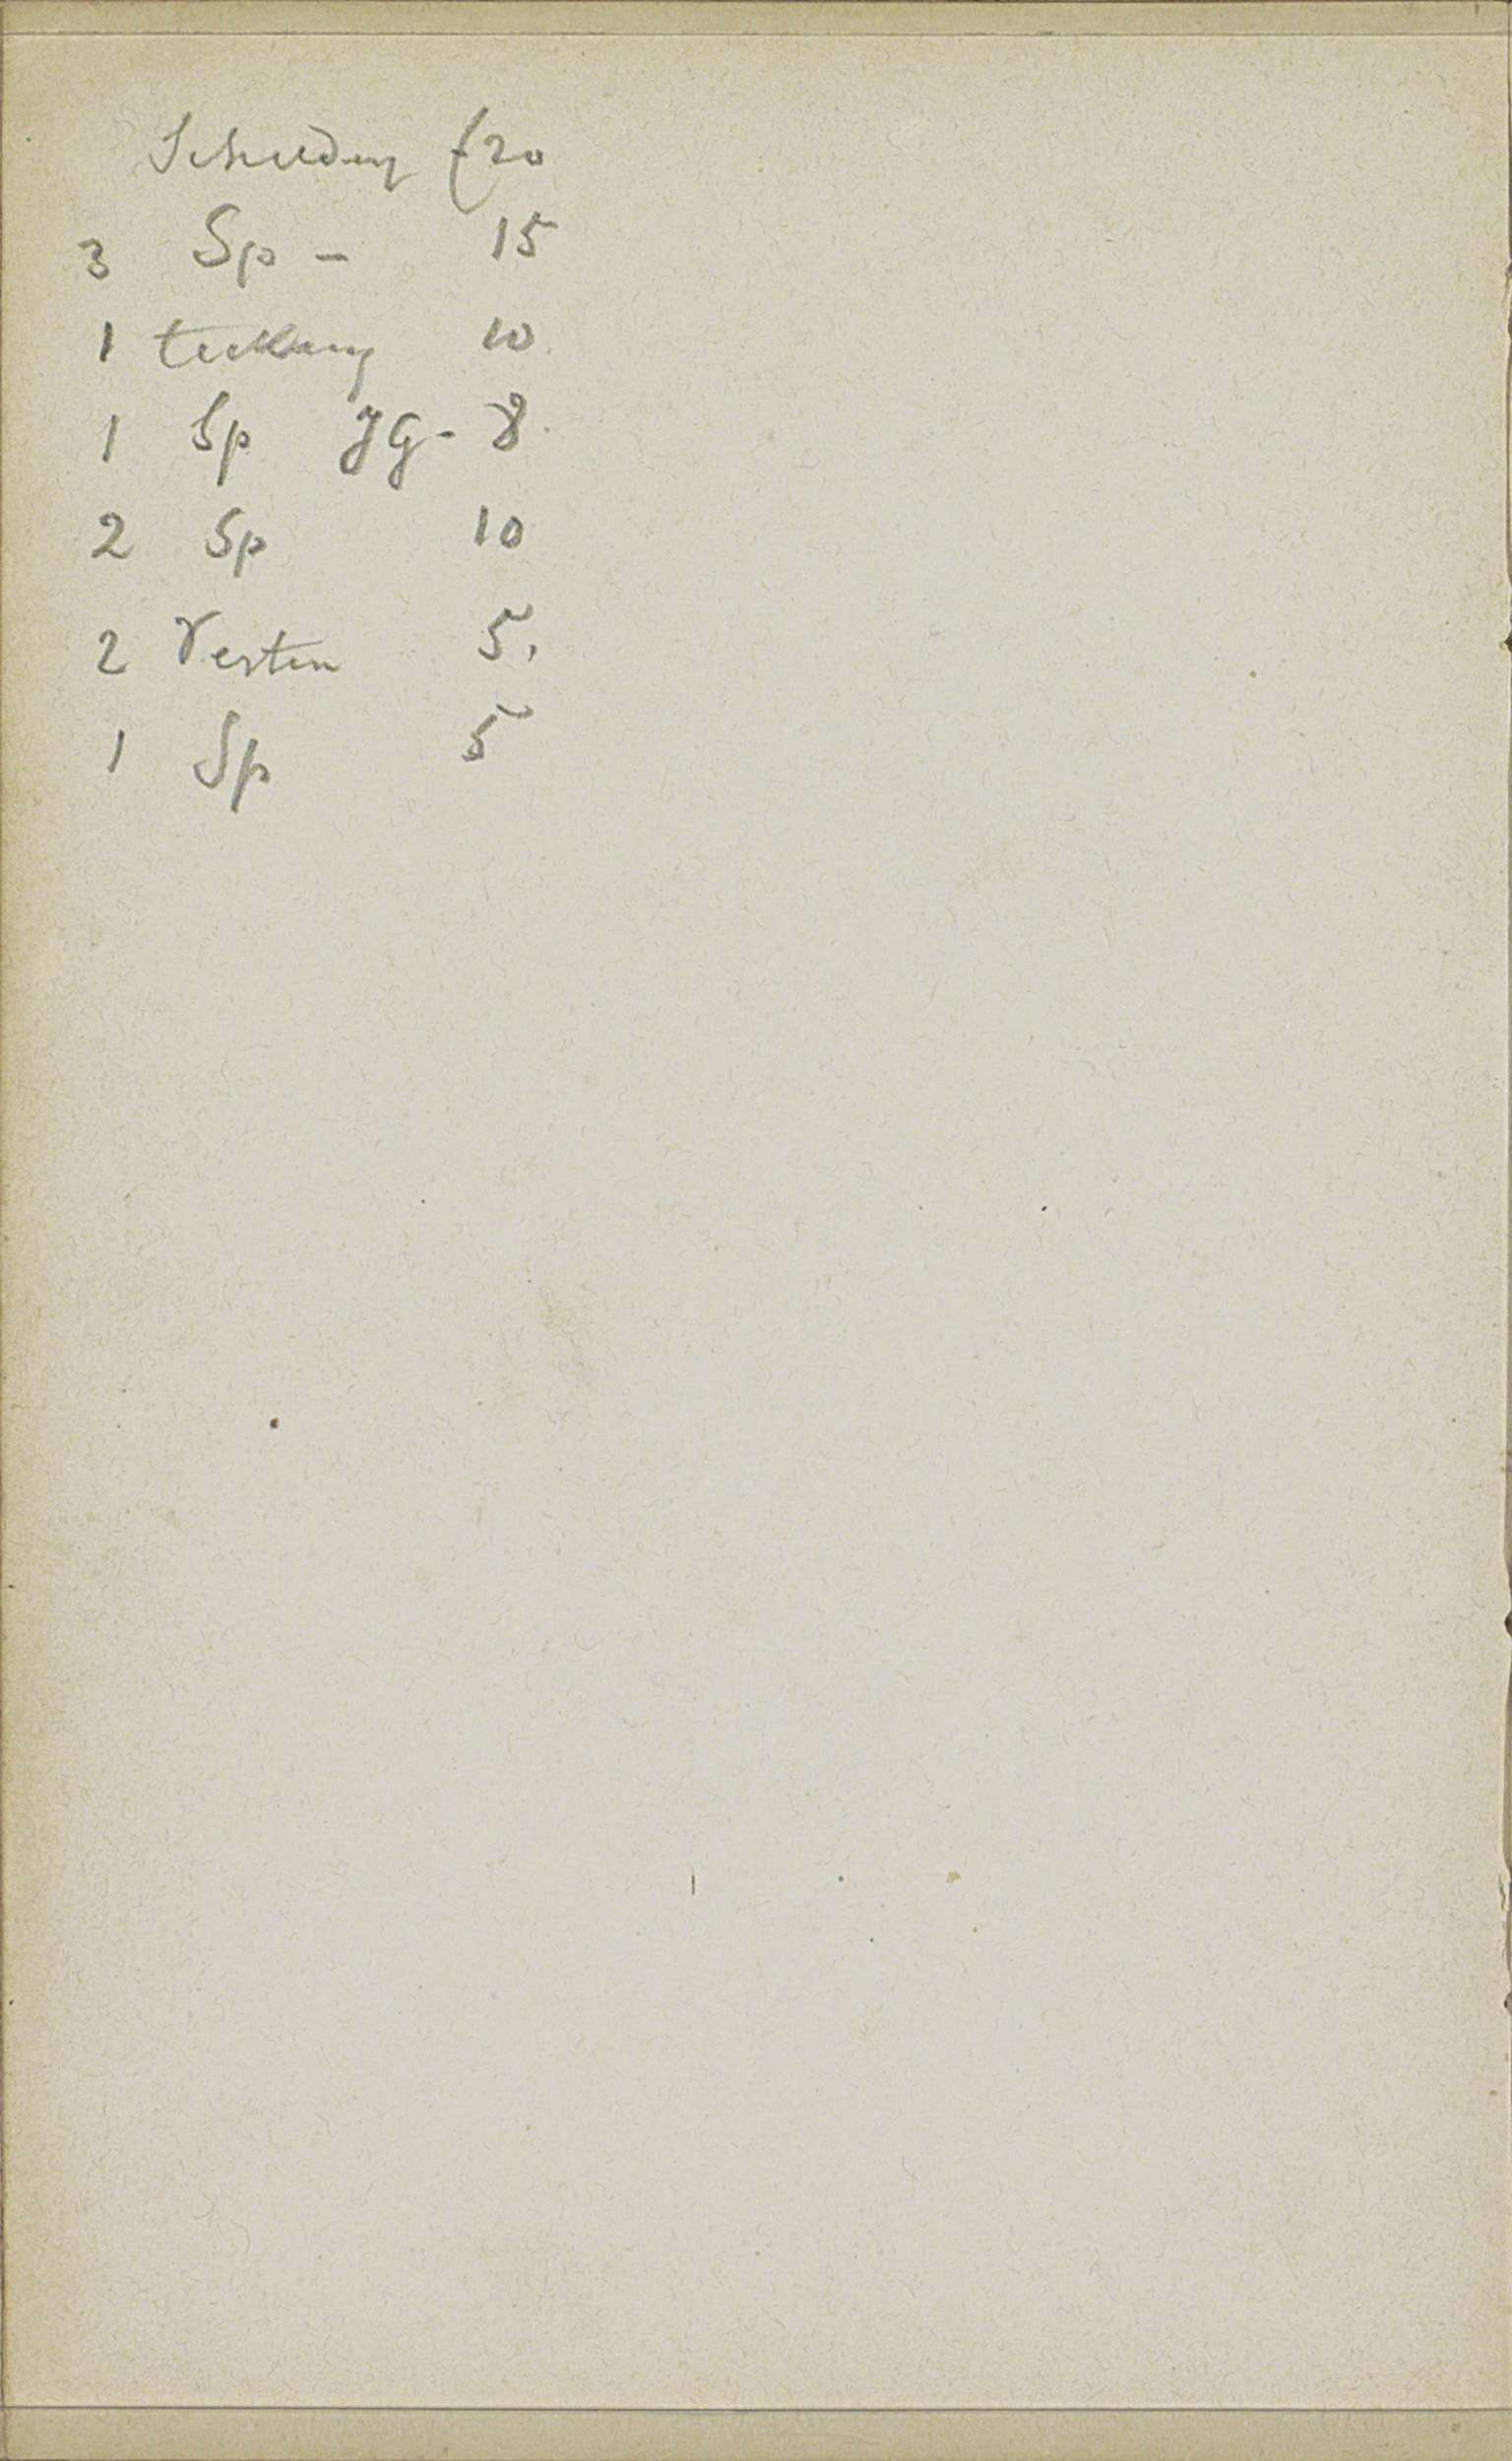 ƒ20
3 Sp - 15
1 10
1 Sp JG- 8
2 Sp 10
2 Vesten 5,
1 Sp 5